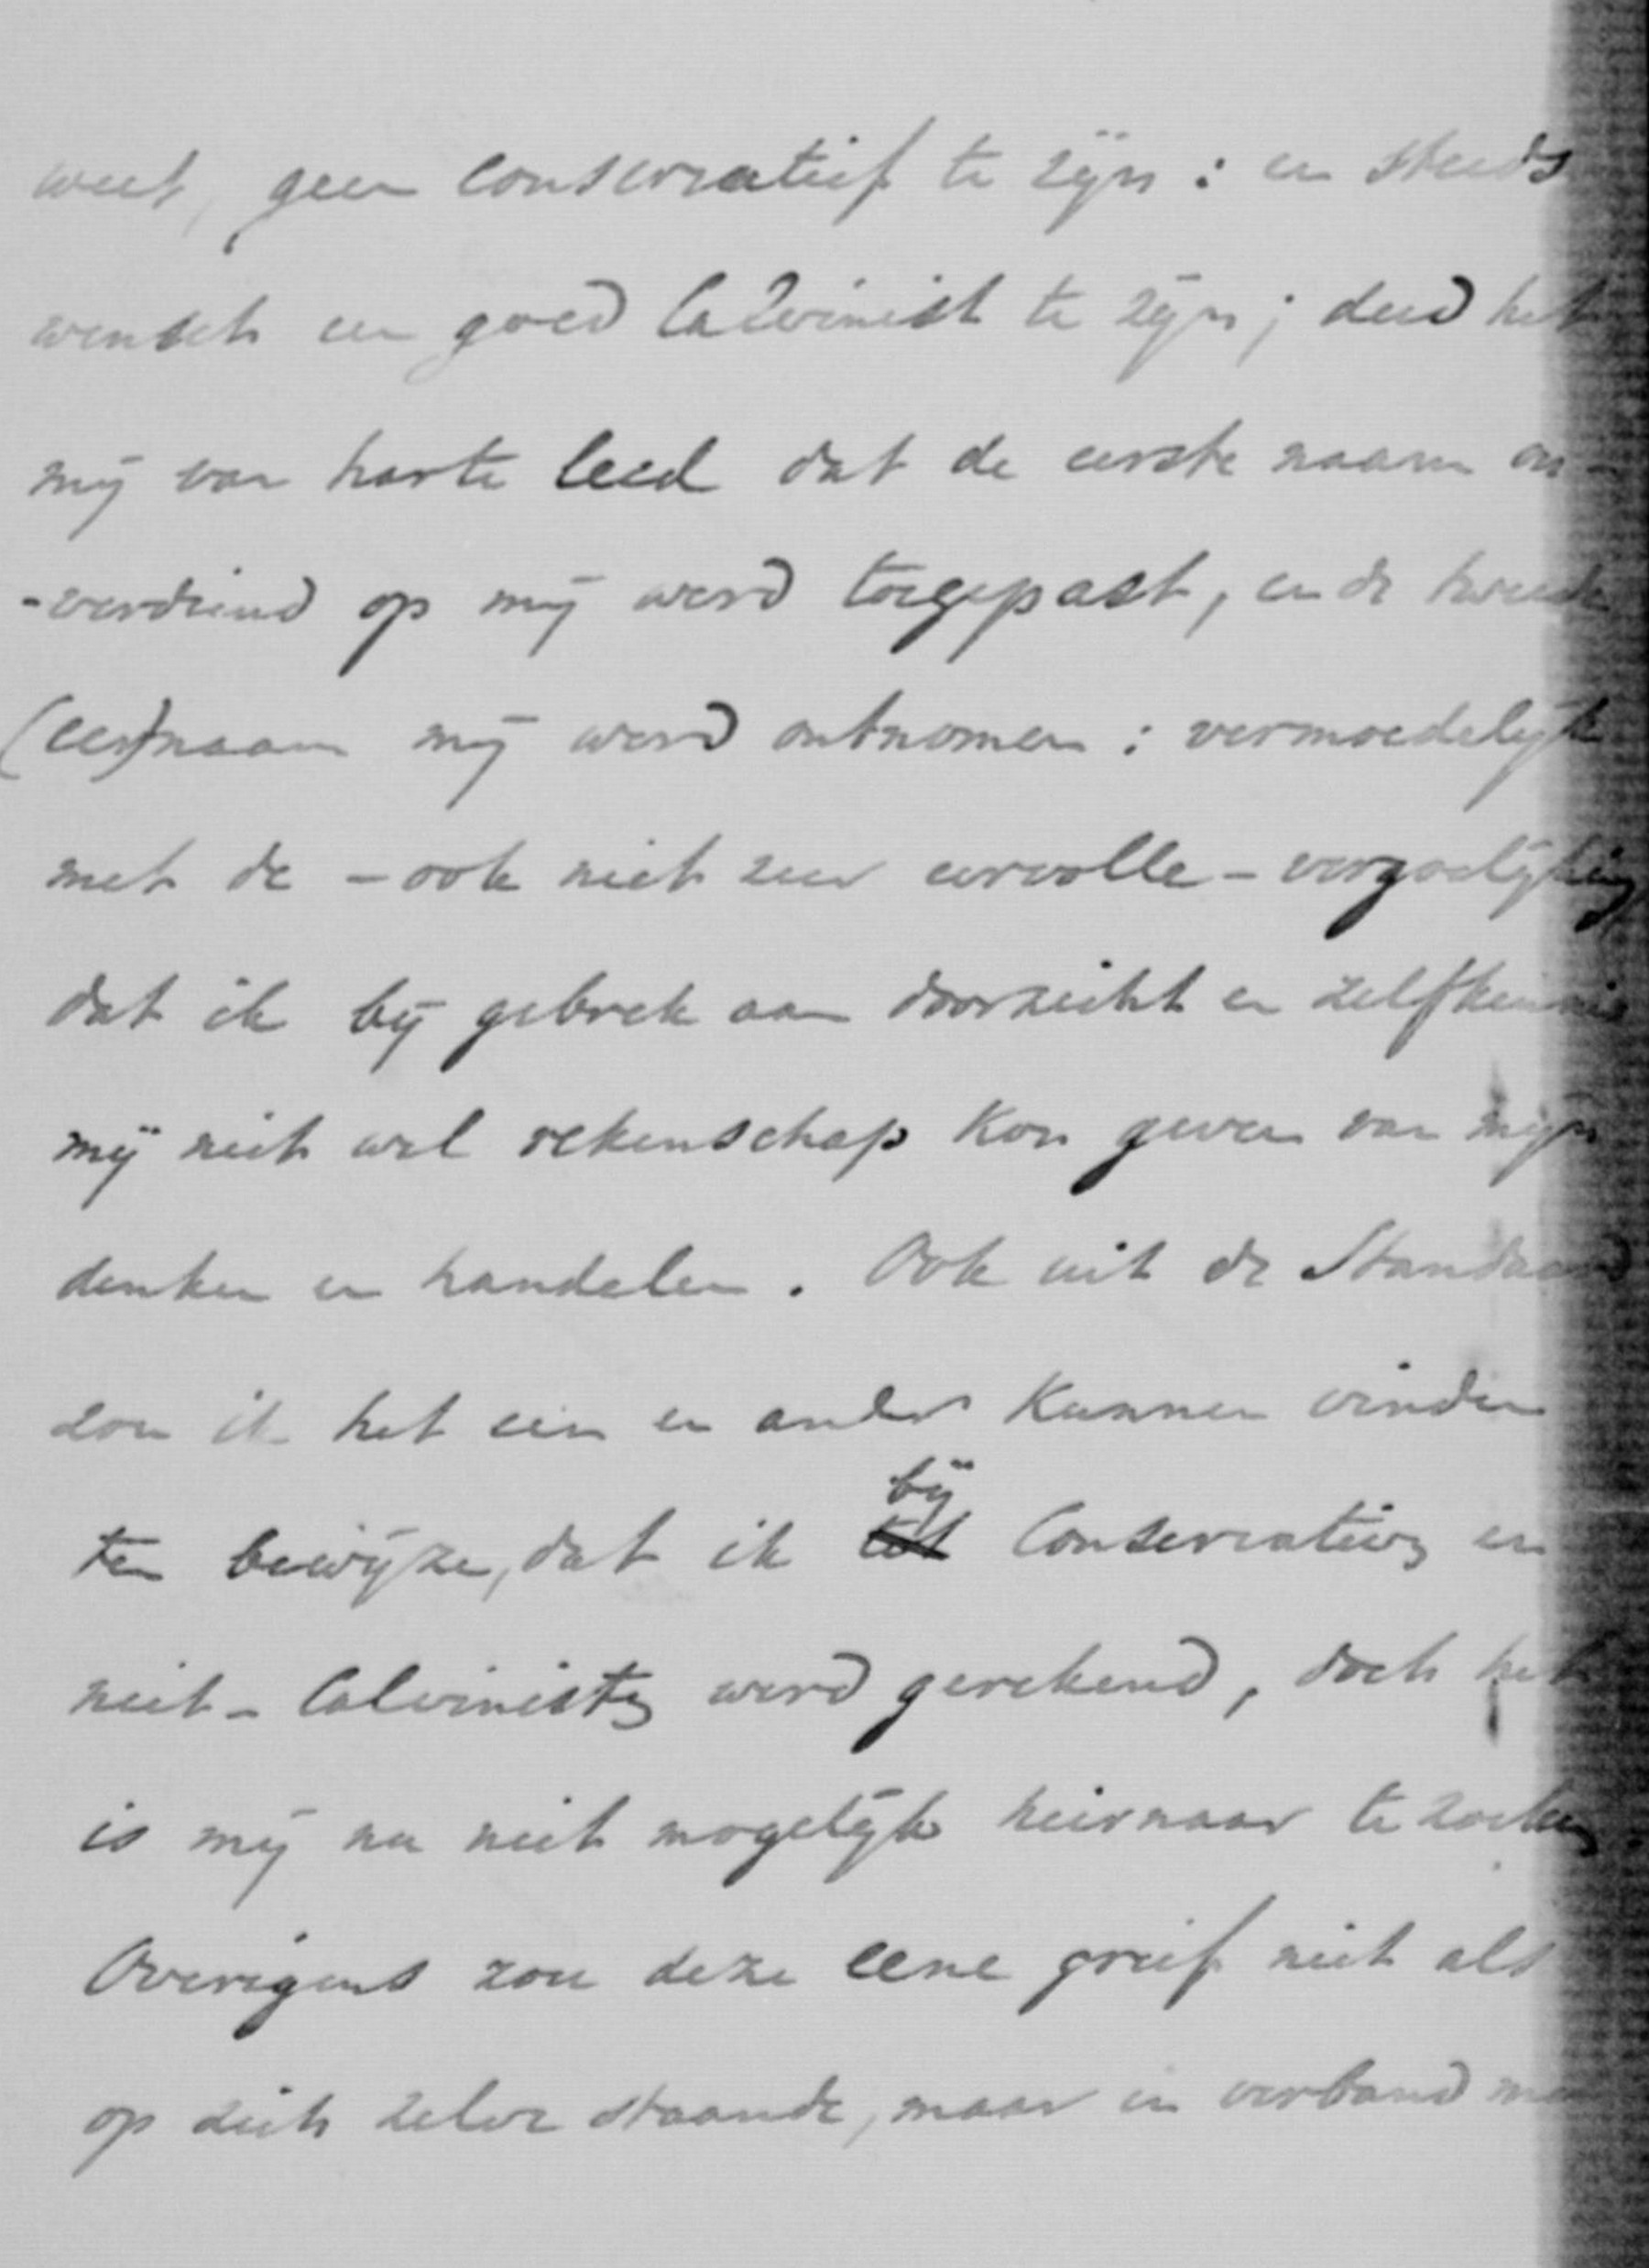 weet, geen conservatief te zijn: en steeds
wensch een goed Calvinist te zijn; deed het
mij van harte leed dat de eerste naam on-
-verdiend op mij werd toegepast, en de tweede
(eer)naam mij werd ontnomen: vermoedelijk
met de - ook niet zeer eervolle - vergoelijking
dat ik bij gebrek aan doorzicht en zelfkennis
mij niet wel rekenschap kon geven van mijn
denken en handelen. Ook uit de Standaard
zou ik het een en ander kunnen vinden
ten bewijze, dat ik tot bij Conservatieven en
niet-Calvinisten werd gerekend, doch het
is mij nu niet mogelijk hiernaar te zoeken
Overigens zou deze eene grief niet als
op zich zelve staande, maar in verband met